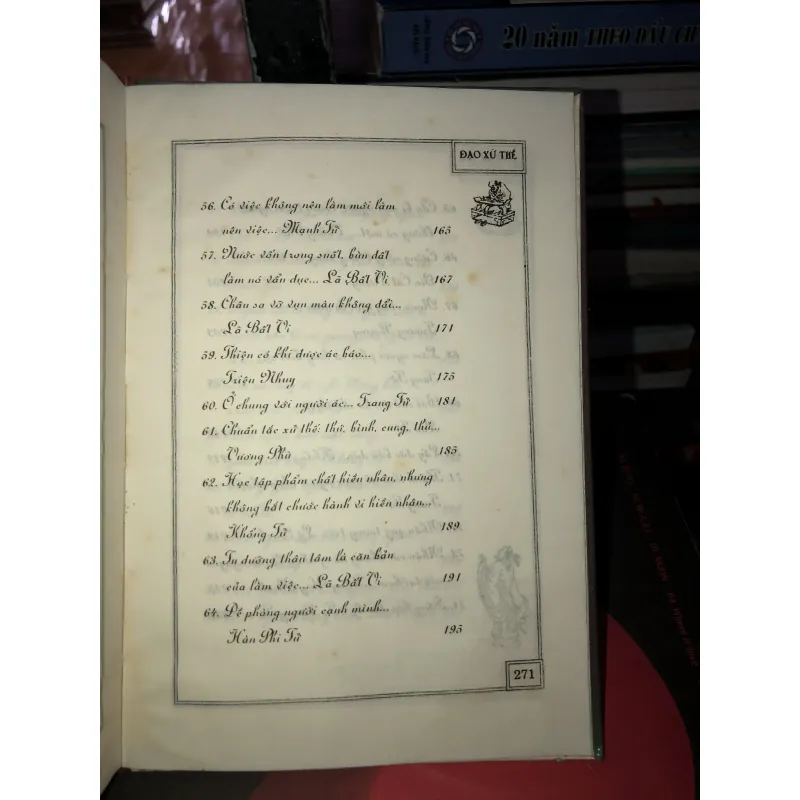 20 năm THEO DẤU
ĐẠO XỬ THẾ
56. Có việc không nên làm mới làm
nên việc... Mạnh Tử 163
57. Nước vốn trong suốt, bùn đất
làm nó vẩn đục... Lã Bất Vi 167
58. Châu sa vỡ vụn màu không đổi...
Lã Bất Vi 171
59. Thiện có khi được ác báo...
Triệu Nhuy 175
60. Ở chung với người ác... Trang Tử 181
61. Chuẩn tắc xử thế: thự, bình, cung, thủ...
Vương Phù 185
62. Học tập phẩm chất hiền nhân, nhưng
không bắt chước hành vi hiền nhân...
Khổng Tử 189
63. Tu dưỡng thân tâm là căn bản
của làm việc... Lã Bất Vi 191
64. Đề phòng người cạnh mình...
Hàn Phi Tử 195
271